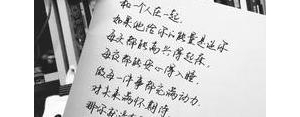 和一个人在一起
如果他给你的能量是让你
每天都能高兴得起床
每夜都能安心得入睡
做每一件事都充满动力
对未来满怀期待
那你就